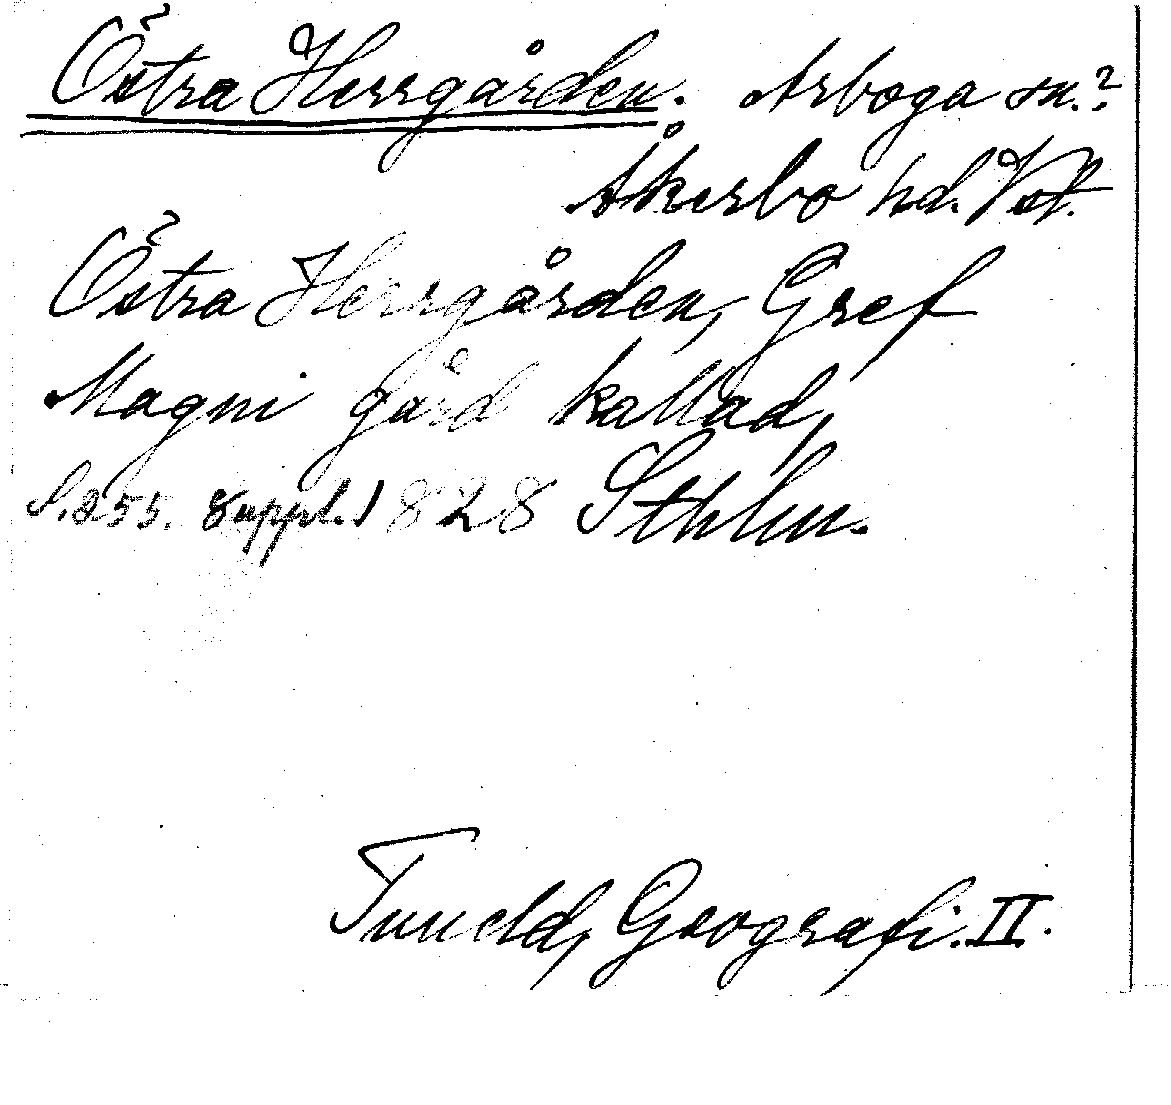 Östra Herrgården. Arboga sn.?
Åkerbo hd. Vstm.
Östra Herrgården, Gref
Magni gård kallad,
S. 255. Suppl. 1828 Sthlm.
Tuneld, Geografi. II.